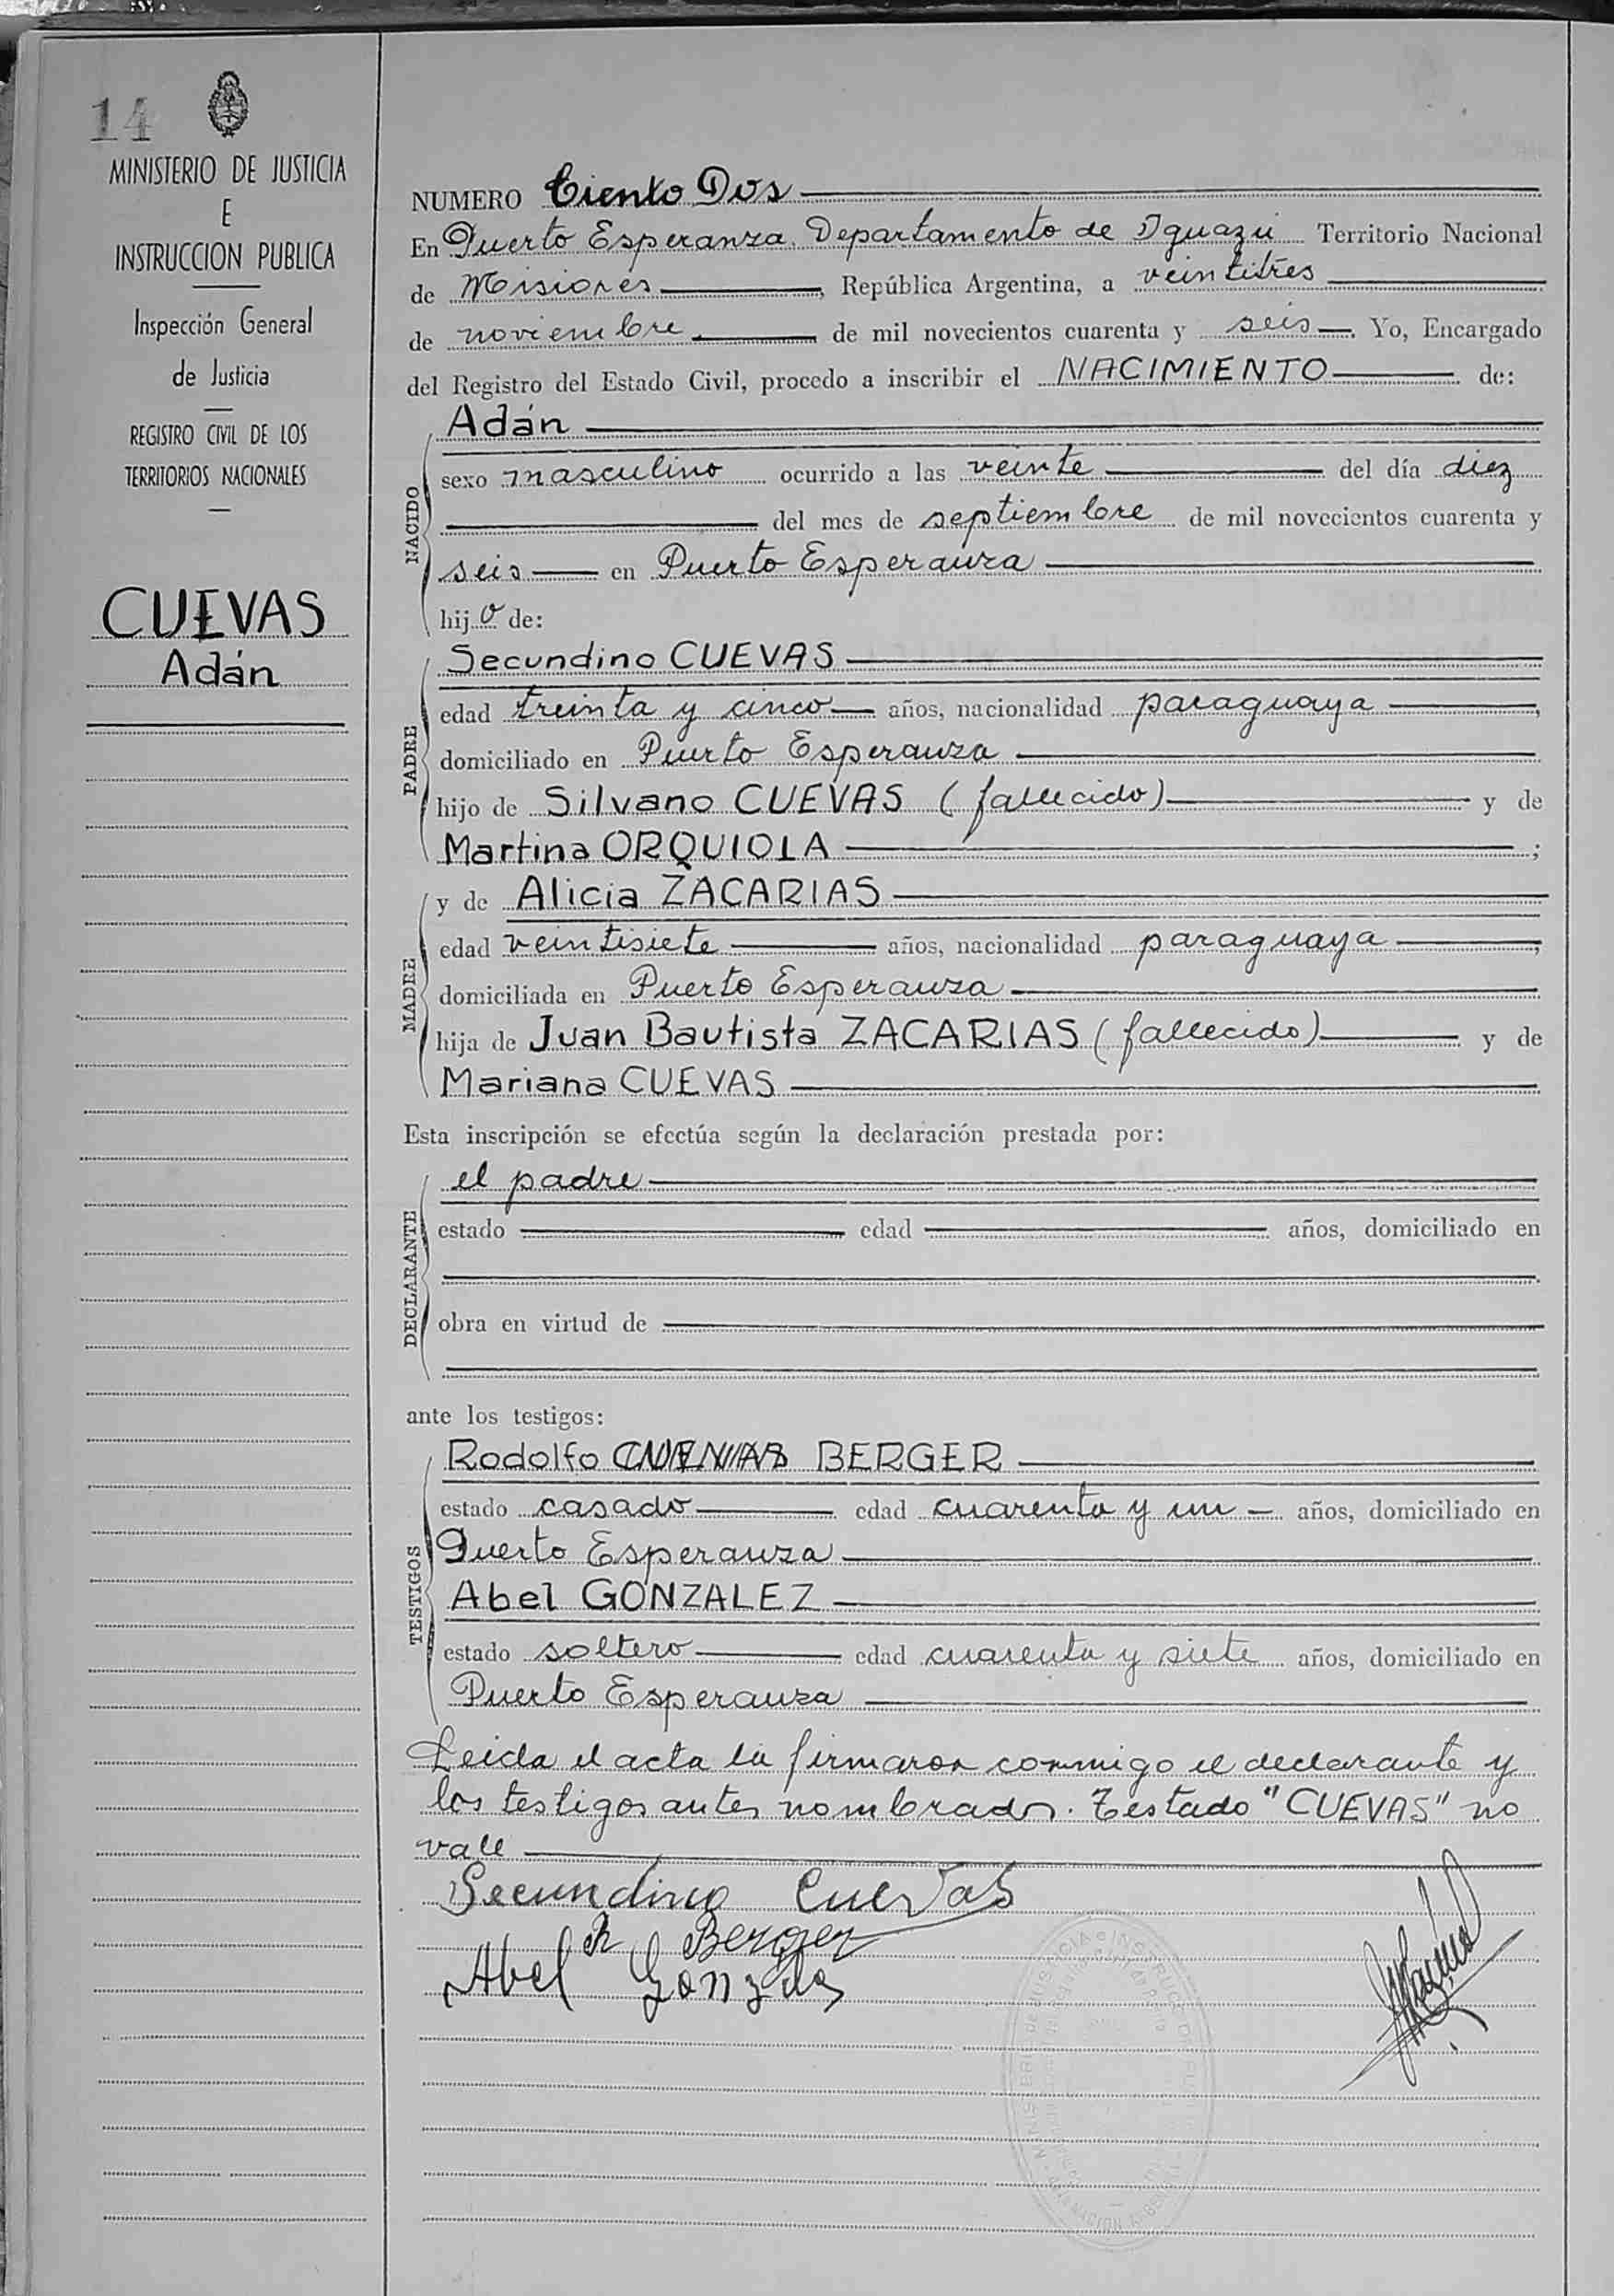 14
MINISTERIO DE JUSTICIA
E
INSTRUCCION PUBLICA
Inspección General
de Justicia
REGISTRO CIVIL DE LOS
TERRITORIOS NACIONALES
CUEVAS
Adán
NUMERO Ciento Dos
En Puerto Esperanza, Departamento de Iguazú Territorio Nacional
de Misiones, República Argentina, a veintitrés
de noviembre de mil novecientos cuarenta y seis. Yo, Encargado
del Registro del Estado Civil, procedo a inscribir el NACIMIENTO de:
NACIDO
Adán
sexo masculino ocurrido a las veinte del día diez
del mes de septiembre de mil novecientos cuarenta y
seis en Puerto Esperanza
hijo de:
PADRE
Secundino CUEVAS
edad treinta y cinco años, nacionalidad paraguaya,
domiciliado en Puerto Esperanza
hijo de Silvano CUEVAS (fallecido) y de
Martina ORQUIOLA;
MADRE
y de Alicia ZACARIAS
edad veintisiete años, nacionalidad paraguaya,
domiciliada en Puerto Esperanza
hija de Juan Bautista ZACARIAS (fallecido) y de
Mariana CUEVAS
Esta inscripción se efectúa según la declaración prestada por:
DECLARANTE
el padre
estado edad años, domiciliado en
obra en virtud de
ante los testigos:
TESTIGOS
Rodolfo CUEVAS BERGER
estado casado edad cuarenta y un años, domiciliado en
Puerto Esperanza
Abel GONZALEZ
estado soltero edad cuarenta y siete años, domiciliado en
Puerto Esperanza
Leida el acta la firmaron conmigo el declarante y
los testigos antes nombrados. Testado "CUEVAS" no
vale
Secundino Cuevas
R Berger
Abel Gonzalez